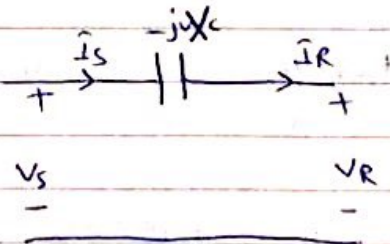 -jXc
ĪS ĪR
+ +
VS VR
- -